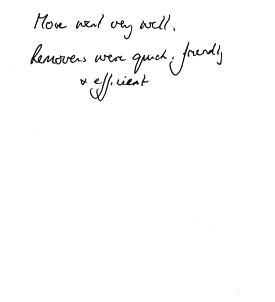 Move went very well.
Removers were quick, friendly
& efficient